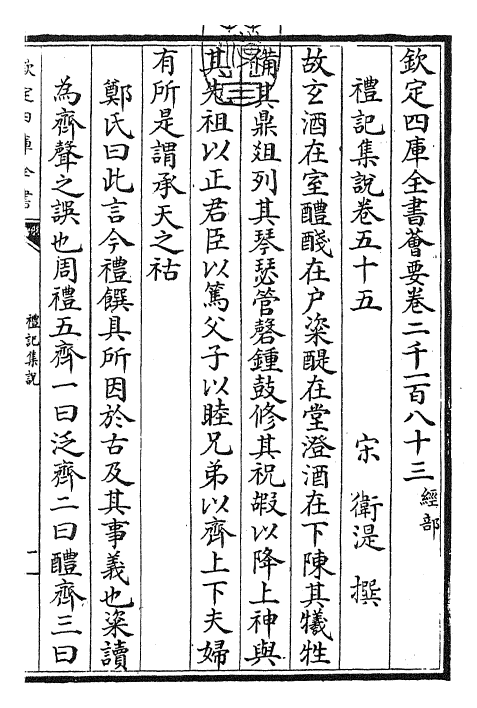 欽定四庫全書薈要卷二千一百八十三 經部
禮記集說卷五十五 宋 衛湜 撰
故玄酒在室醴醆在户粢醍在堂澄酒在下陳其犧牲
備其鼎俎列其琴瑟管磬鍾鼓修其祝嘏以降上神與
其先祖以正君臣以篤父子以睦兄弟以齊上下夫婦
有所是謂承天之祜
鄭氏曰此言今禮饌具所因於古及其事義也粢讀
為齊聲之誤也周禮五齊一曰泛齊二曰醴齊三曰
欽定四庫全書
禮記集說
一